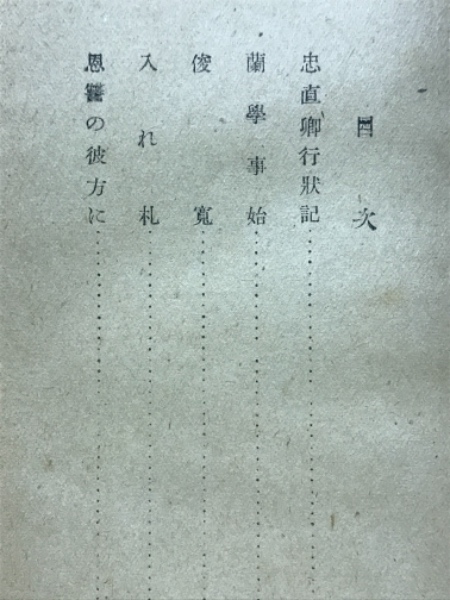 目次
忠直卿行狀記
蘭學事始
俊寬
入れ札
恩讐の彼方に